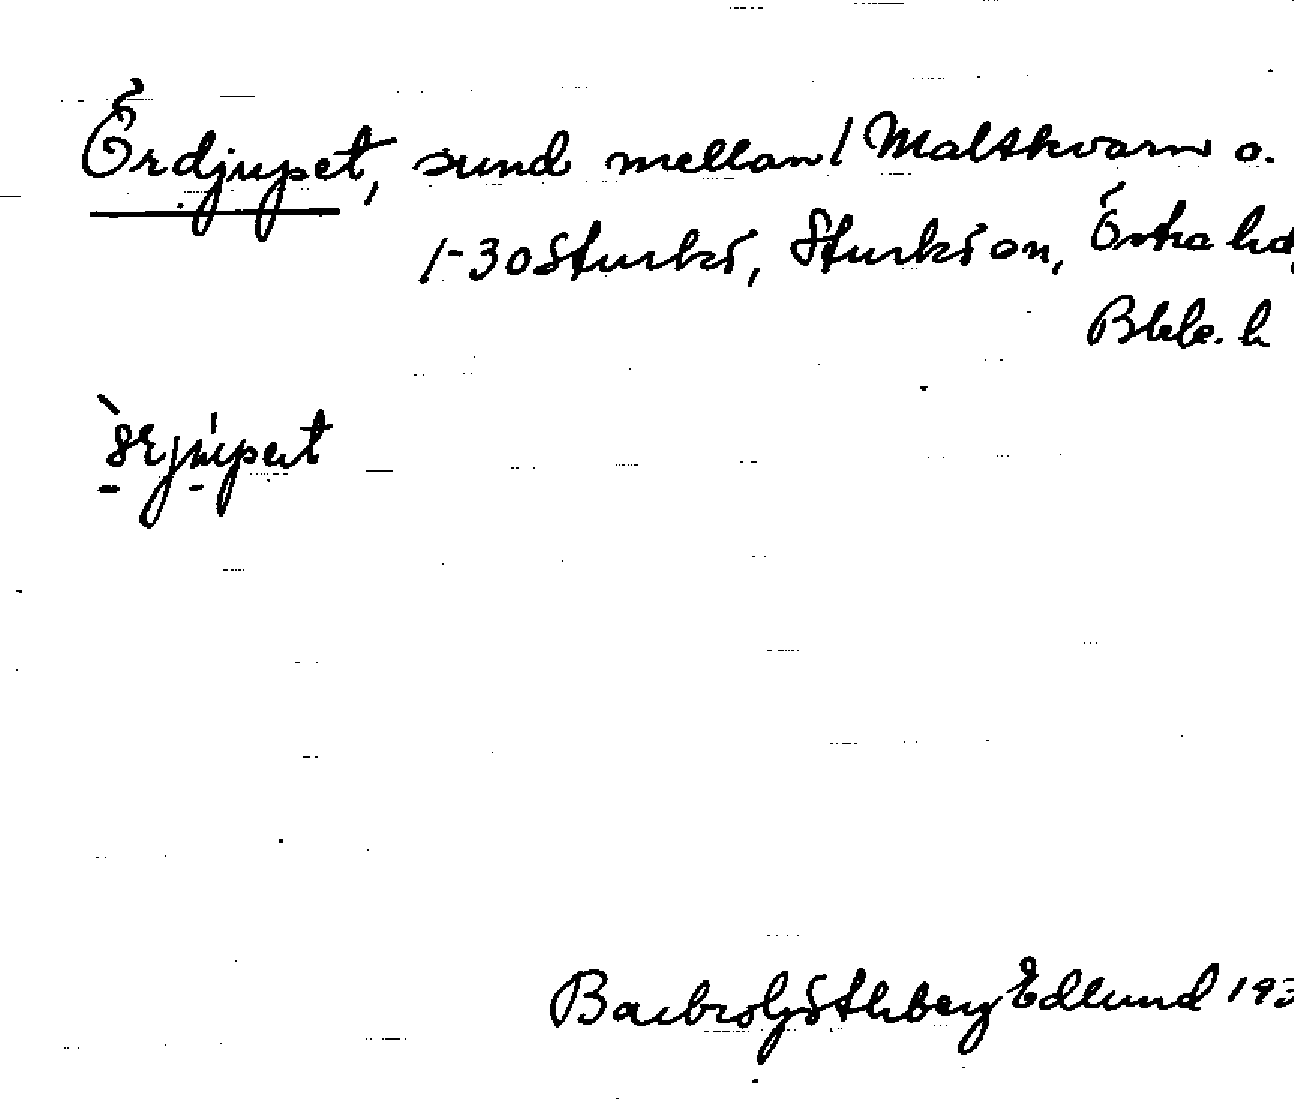 Ördjupet, sund mellan 1 Maltkvarn o.
1-30 Sturkö, Sturkö sn, Östra hd,
Blek. l
Barbro Göthberg Edlund 193